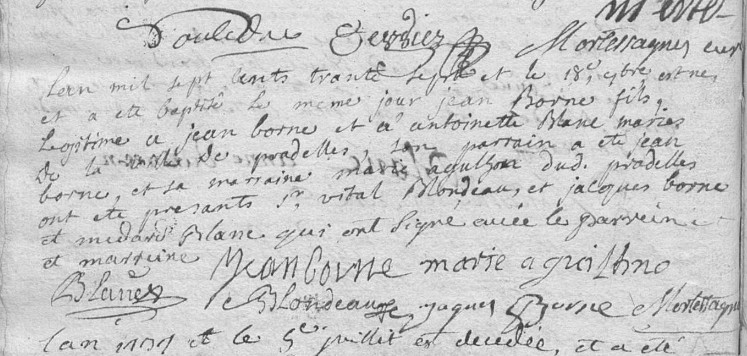 Mortessagnes curé
Lan mil sept cents trante sept et le 18e xbre est ne,
et a ete baptisé le meme jour jean Borne fils,
Legitime a jean borne et a antoinette Blanc mariés
de la ville de pradelles, son parrain a ete jean
borne, et sa marraine marie agulhon dud. pradelles
ont ete presants Sr vital Blondeau, et jacques borne
et medard Blanc qui ont signé avec le parrein
et marreine Jean borne marie aguilhno
Blanc Blondeau jaques Borne Mortessagnes
Lan 1737 et le 5e juillit est decedée, et a été